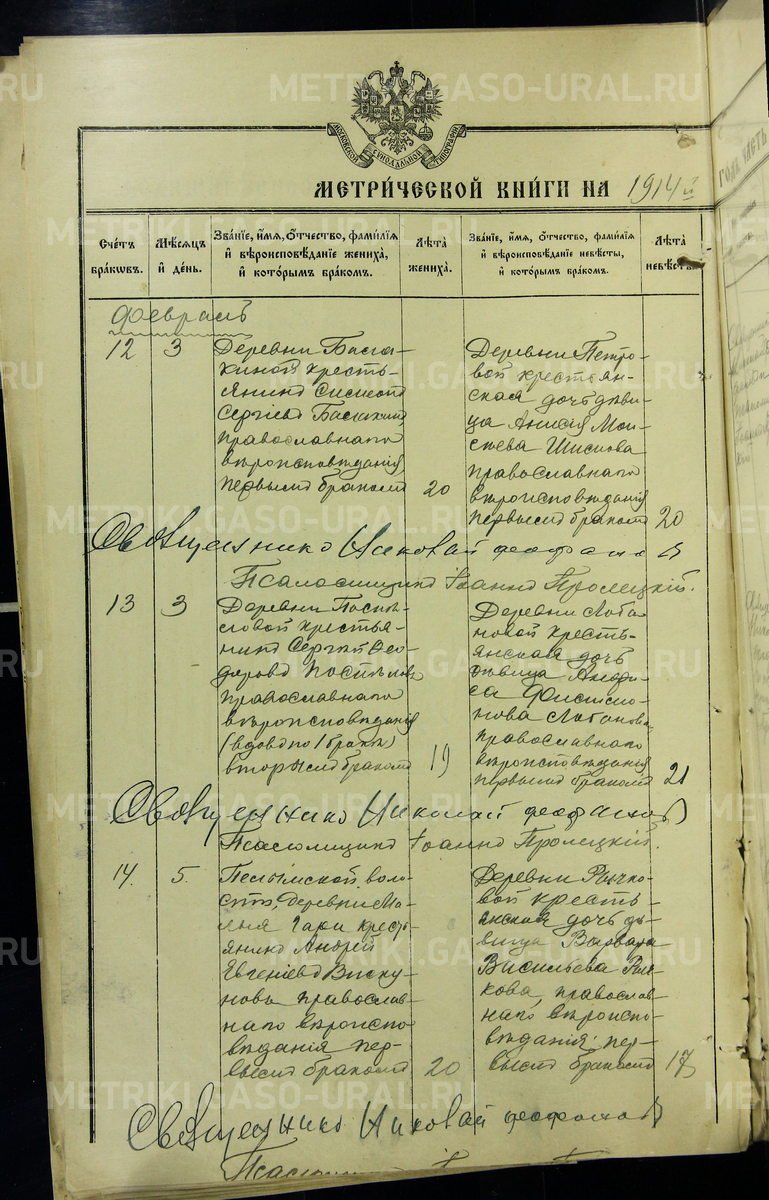 МОСКОВСКОЙ СѴНОДАЛЬНОЙ ТИПОГРАФІИ
МЕТРИЧЕСКОЙ КНИГИ НА 1914й
ГОДА ЧАСТЬ
Счетъ браковъ.
Мѣсяцъ и день.
Званіе, имя, отчество, фамилія и вѣроисповѣданіе жениха, и которымъ бракомъ.
Лѣта жениха.
Званіе, имя, отчество, фамилія и вѣроисповѣданіе невѣсты, и которымъ бракомъ.
Лѣта невѣсты
Февраль
12
3
Деревни
киной кресть-
янинъ
Сергіевъ
православнаго
вѣроисповѣданія,
первымъ бракомъ
20
Деревни Петро-
вой крестьян-
ская дочь дѣви-
ца Анисія Мои-
сеева
православнаго
вѣроисповѣданія
первымъ бракомъ
20
Священникъ Николай
Псаломщикъ Іоаннъ Пролецкій.
13
3
Деревни
ловой крестья-
нинъ Сергѣй Ѳео-
доровъ
православнаго
вѣроисповѣданія
(вдовъ по 1 бракѣ)
вторымъ бракомъ
19
Деревни Лоба-
новой кресть-
янская дочь
дѣвица Анфи-
са
нова Лобанова,
православнаго
вѣроисповѣданія
первымъ бракомъ
21
Священникъ Николай
Псаломщикъ Іоаннъ Пролецкій.
14.
5.
Пелымской воло-
сти, деревни Ма-
лыя Гари кресть-
янинъ Андрей
Евгеніевъ Виску-
новъ, православ-
наго вѣроиспо-
вѣданія, пер-
вымъ бракомъ
20
Деревни Рычко-
вой кресть-
янская дочь дѣ-
вица Варвара
Васильева Рыч-
кова, православ-
наго вѣроиспо-
вѣданія, пер-
вымъ бракомъ
17
Священникъ Николай
METRIKI.GASO-URAL.RU